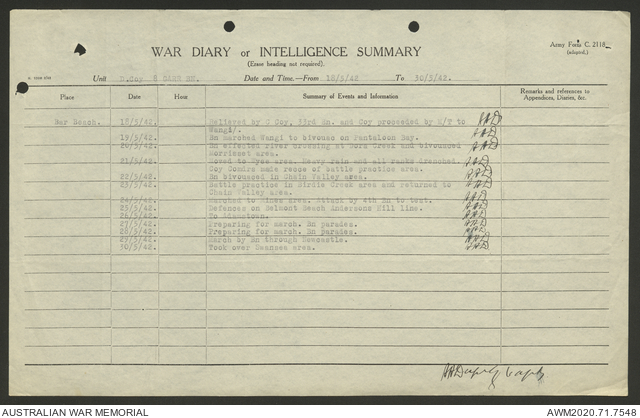 Army Form C. 2118
(adapted.)
WAR DIARY or INTELLIGENCE SUMMARY
(Erase heading not required).
Unit D.Coy 8 Bn. Date and Time.—From 18/5/42 To 30/5/42.
Place Date Hour Summary of Events and Information Remarks and references to
Appendices, Diaries, &c.
Bar Beach. 18/5/42. Relieved by C Coy, 33rd Bn. and Coy proceeded by M/T to
Wangi.
19/5/42. Bn marched Wangi to bivouac on Pantaloon Bay.
20/5/42. Bn effected river crossing at Dora Creek and bivouaced
Morrisset area.
21/5/42. Moved to Wyee area. Heavy rain and all ranks drenched.
Coy Comdrs made recce of battle practice area.
22/5/42. Bn bivouaced in Chain Valley area.
23/5/42. Battle practice in Birdie Creek area and returned to
Chain Valley area.
24/5/42. Marched to area. Attack by 4th Bn to beat.
25/5/42. Defences on Belmont Beach Andersons Hill line.
26/5/42. To Adamstown.
27/5/42. Preparing for march. Bn parades.
28/5/42. Preparing for march. Bn parades.
29/5/42. March by Bn through Newcastle.
30/5/42. Took over Swansea area.
AUSTRALIAN WAR MEMORIAL AWM2020.71.7548